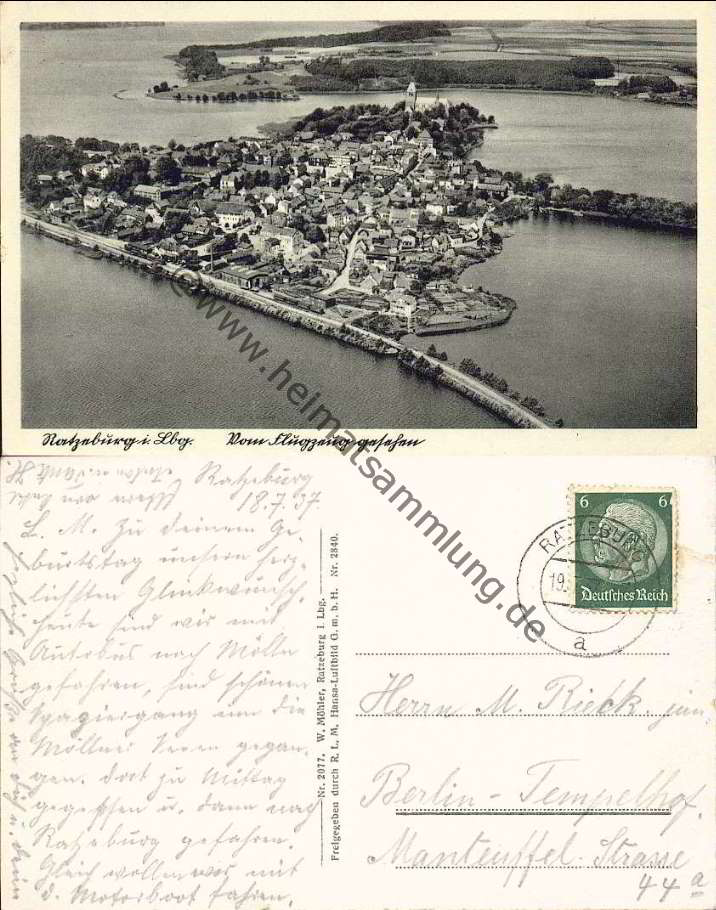 Ratzeburg i. Lbg. Vom Flugzeug gesehen
© www.heimatsammlung.de
Ratzeburg
18.7.37.
L. M. Zu deinem Ge-
burtstag unsern herz-
lichsten Glückwunsch.
heute sind wir mit
Autobus nach Mölln
gefahren, sind schönen
Spaziergang um die
Möllner Seeen gegan-
gen. dort zu Mittag
gegessen u. dann nach
Ratzeburg gefahren.
Gleich wollen wir mit
d. Motorboot fahren.
Nr. 2077. W. Möhler, Ratzeburg i Lbg.
Freigegeben durch R. L. M. Hansa-Luftbild G. m. b. H. Nr. 2840.
6 6
Deutsches Reich
RATZEBURG
19.
a
Herrn M. Rieck. jun
Berlin-Tempelhof.
Manteuffel-Strasse
44 a